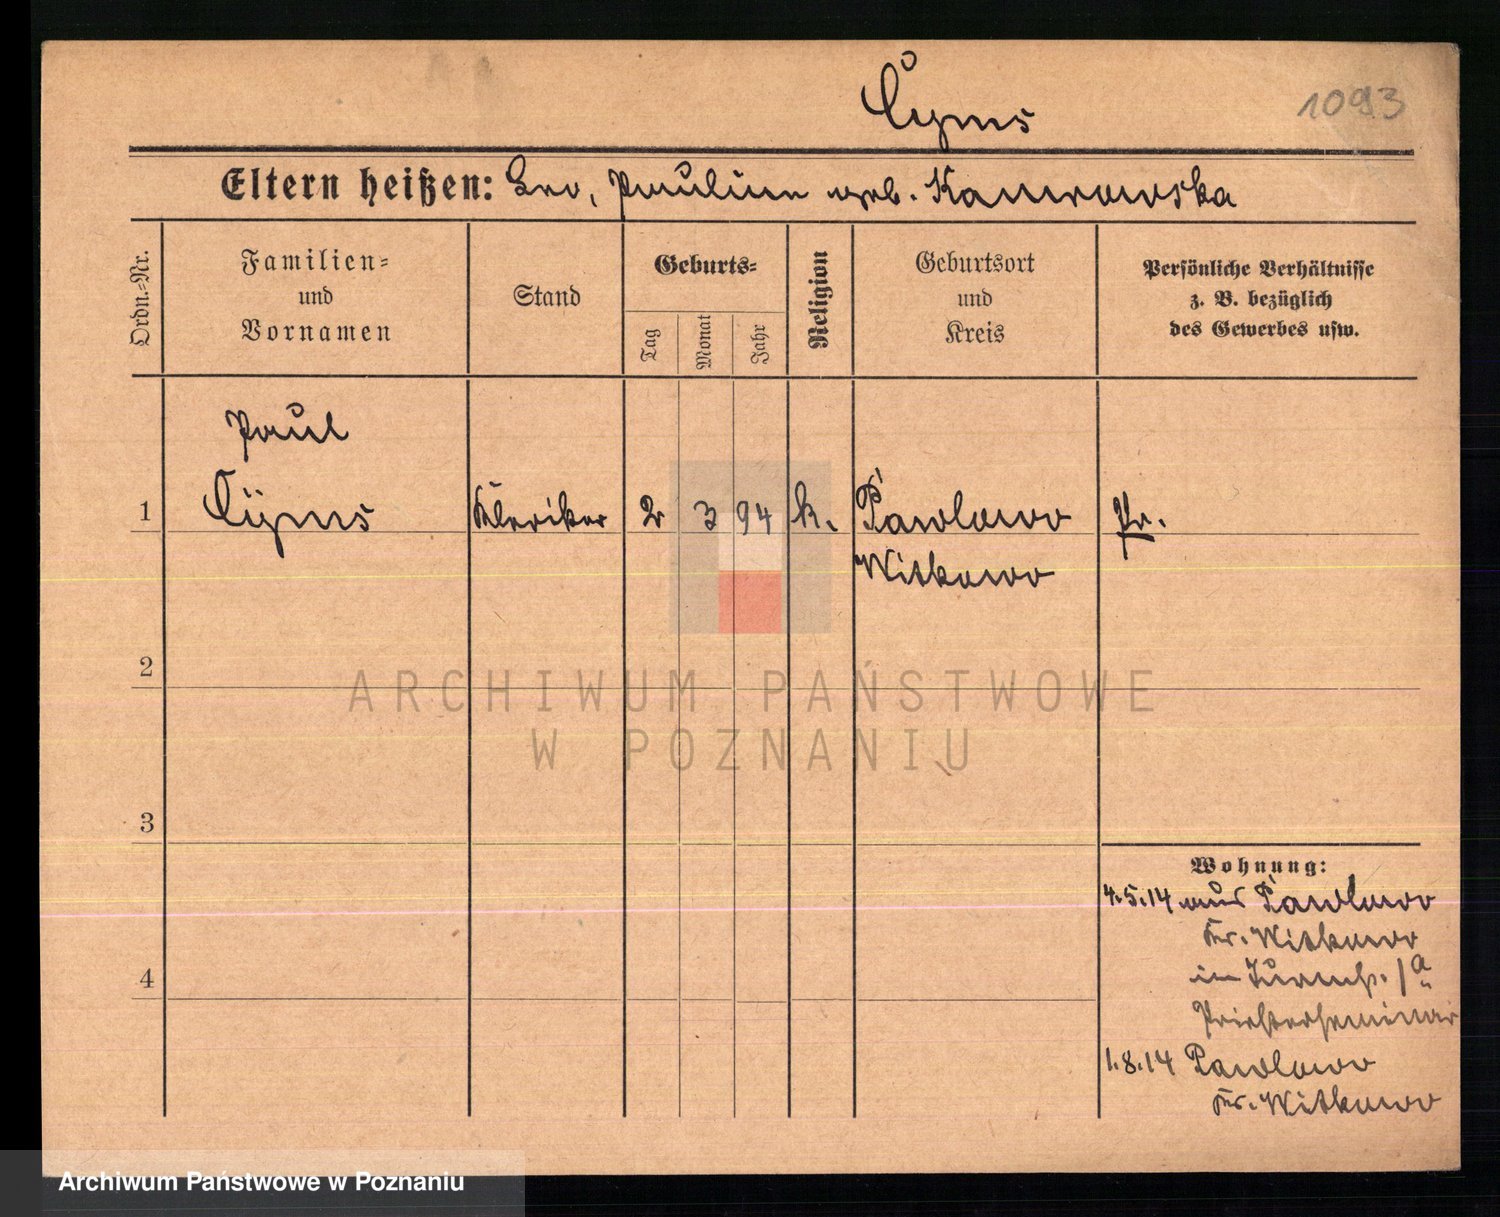 Cyms
1093
Eltern heißen: Leo, Pauline geb. Kamrowska
Ordn.-Nr.
Familien-
und
Vornamen
Stand
Geburts-
Tag
Monat
Jahr
Religion
Geburtsort
und
Kreis
Persönliche Verhältnisse
z. B. bezüglich
des Gewerbes usw.
Paul
1 Cyms Kleriker 2 3 94 k. Pawlowo Pr.
Witkowo
2
ARCHIWUM PAŃSTWOWE
W POZNANIU
3
Wohnung:
4.5.14 aus Pawlowo
Kr. Witkowo
4
Priesterseminar
1.8.14 Pawlowo
Kr. Witkowo
Archiwum Państwowe w Poznaniu